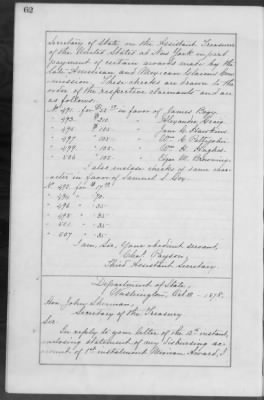 62
Secretary of State on the Assistant Treasurer
of the United States at New York in part
payment of certain awards made by the
late American and Mexican Claims Com-
mission. These checks are drawn to the
order of the respective claimants and are
as follows:
No 491. for $ in favor of James
" 493. " $210. " Alexander
" 495 " $105. " Jane C. Hawkins
" 497 " 105. " Wm C.
" 499. " 105. " Wm H.
" 506 " 105. " Edgar M. Browning.
I also enclose checks of same char-
acter in favor of Samuel S. Cox.
No 492. for $17
" 494 " 70.
" 496 " 35
" 498 " 35
" " 35
" 507 " 35
I am, Sir, Your obedient servant,
Chas. Payson,
Third Assistant Secretary.
Department of State,
Washington, Oct 1878.
Hon. John Sherman,
Secretary of the Treasury
Sir,
In reply to your letter of the instant,
enclosing statement of my disbursing ac-
count of 1st instalment Mexican Award, I